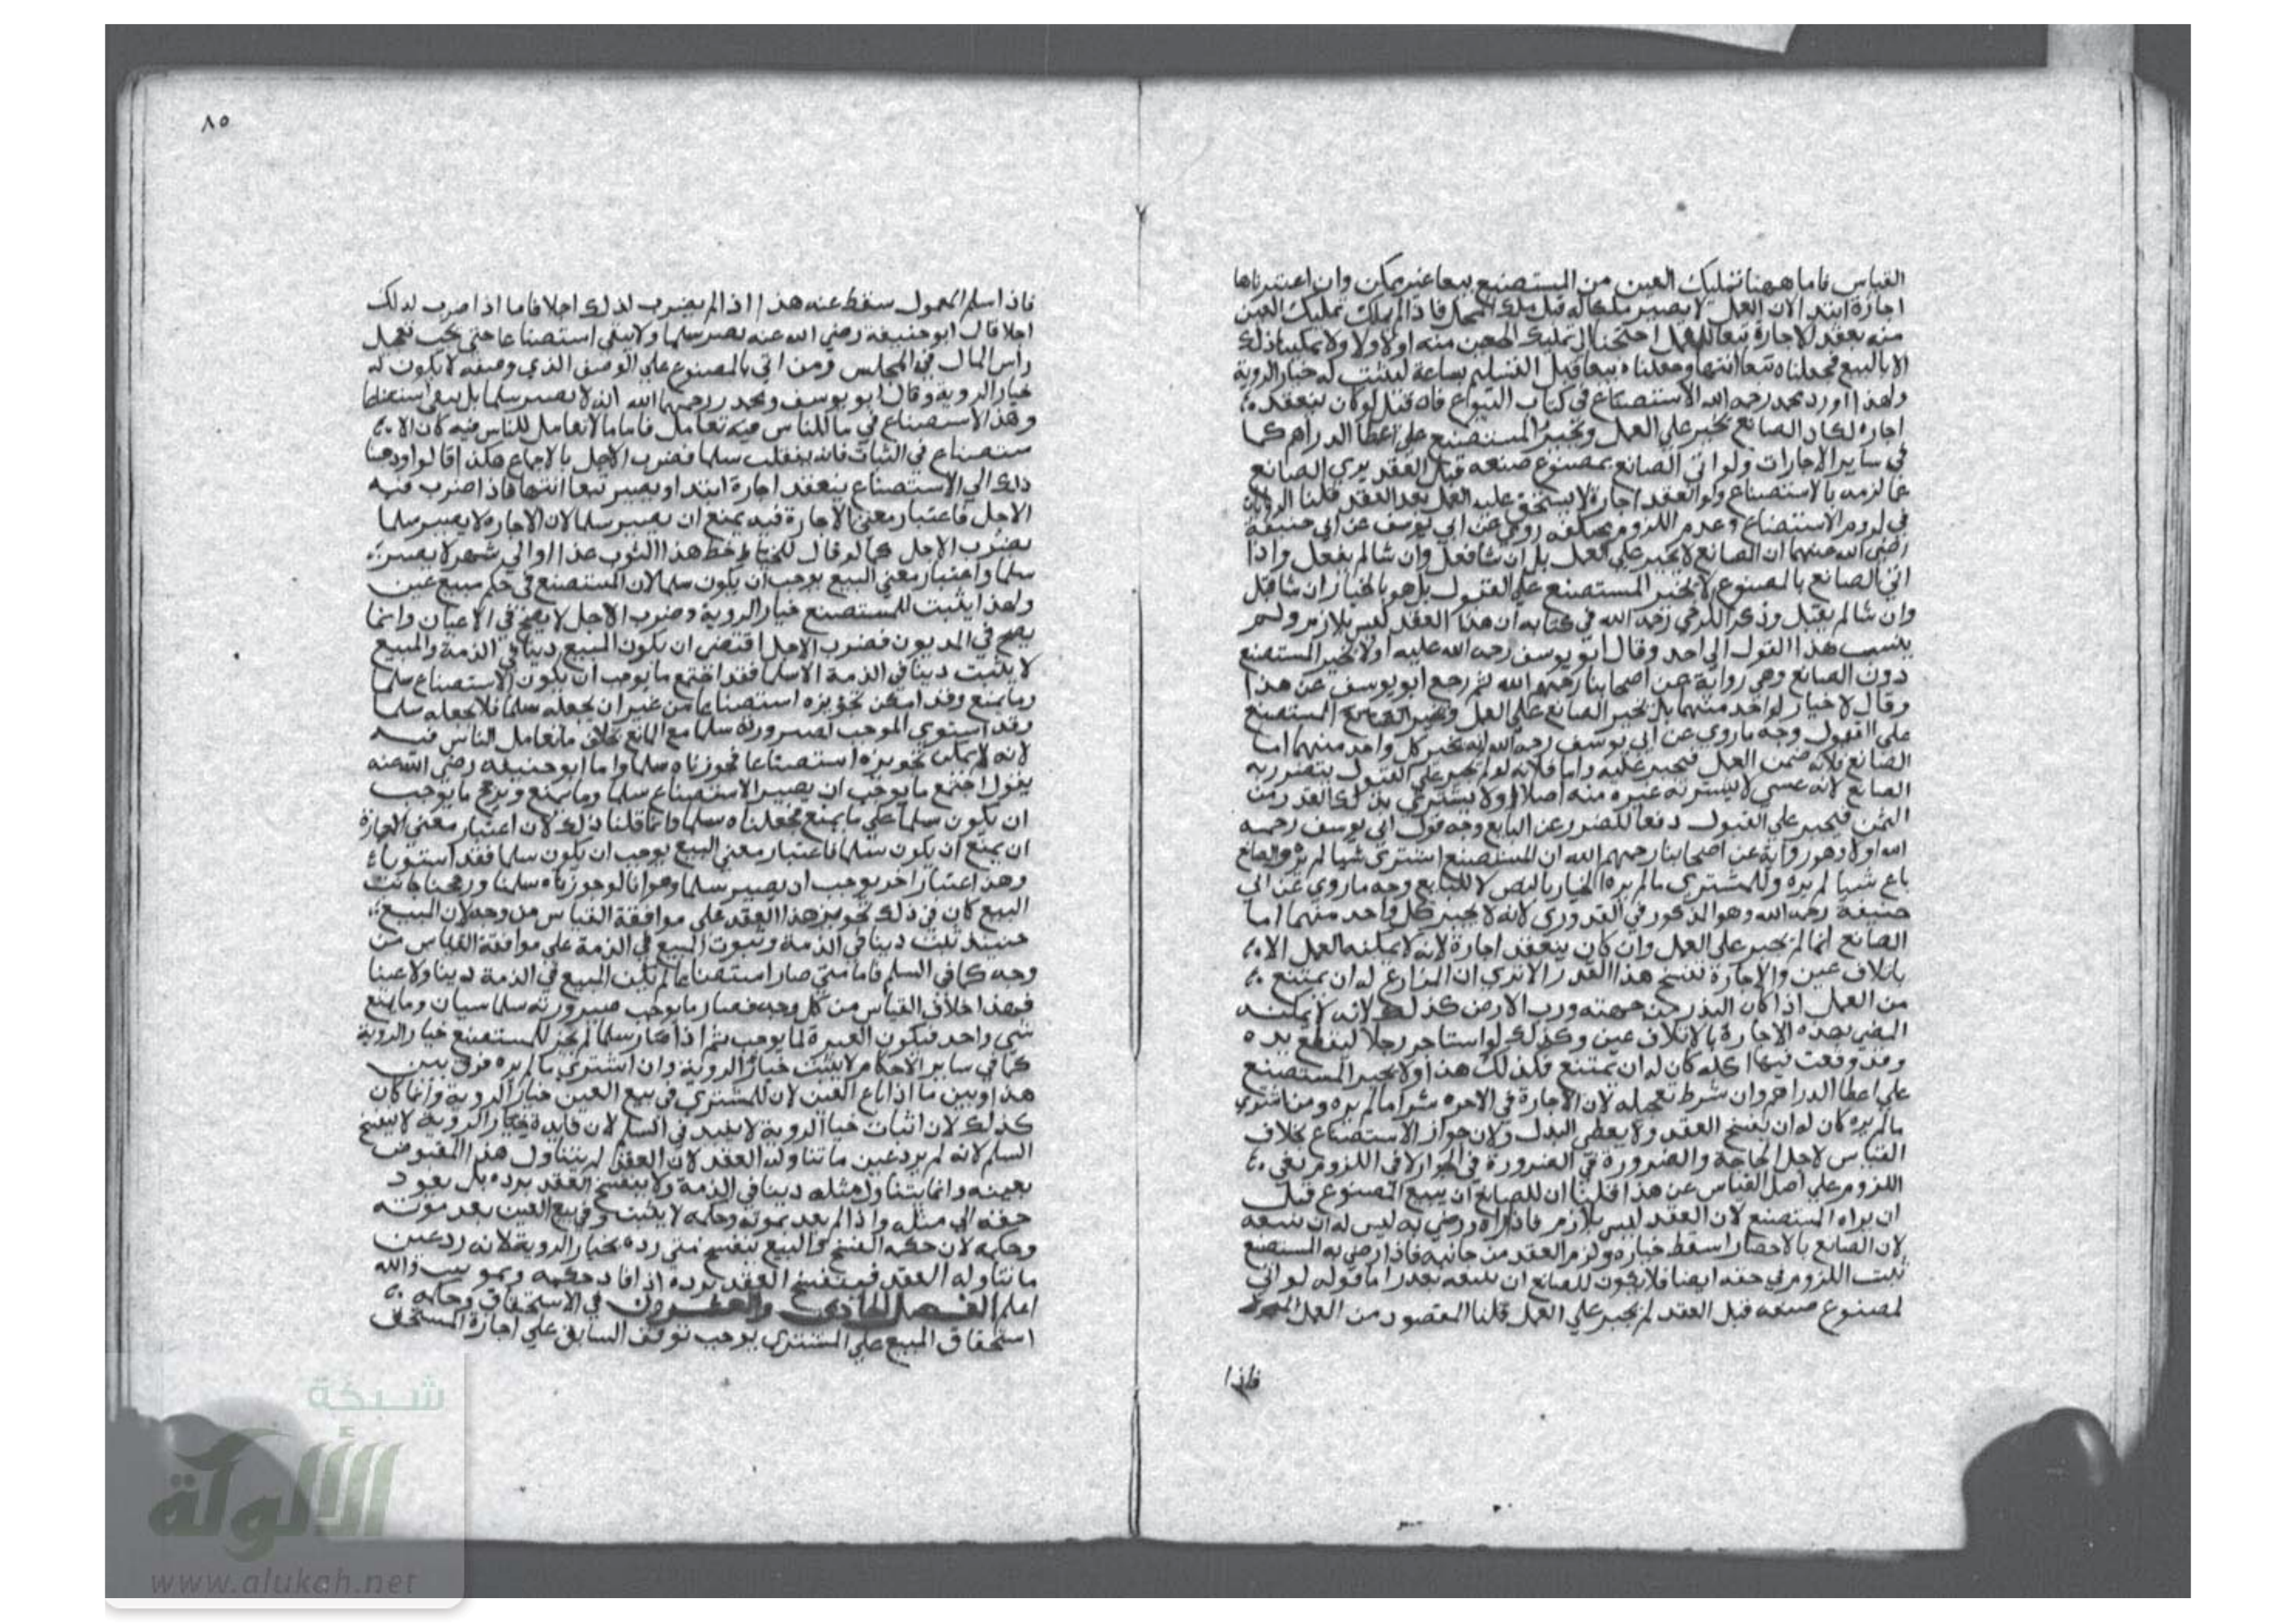 القياس فاما ههنا تمليك العين من المستصنع بيعا غير ممكن وان اعتبرناها
اجارة ابتدا لان العمل لا يصير ملكا له قبل فاذا لم يملك تمليك العين
منه بعقد الاجارة تبعا للعمل احتجنا الى تمليك العين منه اولا ولا يمكننا ذلك
الا بالبيع فجعلناه تبعا انتها وجعلناه بيعا قبل التسليم بساعة ليثبت له خيار الروية
ولهذا اورد محمد رحمه الله الاستصناع في كتاب البيوع فان قيل لو كان ينعقد
اجارة لكان الصانع يجبر على العمل ويجبر المستصنع على اعطا الدراهم كما
في ساير الاجارات ولو اتى الصانع بمصنوع صنعه قبل العقد يبري الصانع
عما لزمه بالاستصناع ولو العقد اجارة لا يستحق عليه العمل بعد العقد قلنا الروايات
في لزوم الاستصناع وعدم اللزوم مختلفة روي عن ابي يوسف عن ابي حنيفة
رضي الله عنهما ان الصانع لا يجبر على العمل بل ان شا فعل وان شا لم يفعل واذا
اتى الصانع بالمصنوع لا يجبر المستصنع على القبول بل هو بالخيار ان شا قبل
وان شا لم يقبل وذكر الكرخي رحمه الله في كتابه ان هذا العقد ليس بلازم ولم
ينسب هذا القول الى احد وقال ابو يوسف رحمه الله عليه اولا يجبر المستصنع
دون الصانع وهي رواية عن اصحابنا رحمهم الله ثم رجع ابو يوسف عن هذا
وقال لا خيار لواحد منهما بل يجبر الصانع على العمل ويجبر المستصنع
على القبول وجه ما روي عن ابي يوسف رحمه الله انه يجبر كل واحد منهما اما
الصانع فلانه ضمن العمل فيجبر عليه واما فلانه لو لم يجبر على القبول يتضرر به
الصانع لانه عسى لا يشتريه غيره منه اصلا او لا يشتري بذلك القدر من
الثمن فيجبر على القبول دفعا للضرر عن البايع وجه قول ابي يوسف رحمه
الله اولا وهو رواية عن اصحابنا رحمهم الله ان المستصنع اشترى شيا لم يره والصانع
باع شيا لم يره وللمشتري ما لم يره الخيار بالنص لا للبايع وجه ما روي عن ابي
حنيفة رحمه الله وهو المذكور في القدوري لانه لا يجبر كل واحد منهما اما
الصانع انما لم يجبر على العمل وان كان ينعقد اجارة لانه لا يمكنه العمل الا
باتلاف عين والاجارة تفسخ هذا القدر الا ترى ان المزارع له ان يمتنع
من العمل اذا كان البذر من جهته ورب الارض كذلك لانه لا يمكنه
المضي بهذه الاجارة الا باتلاف عين وكذلك لو استاجر رجلا ليقطع يده
وقد وقعت فيها اكلة كان له ان يمتنع فكذلك هذا ولا يجبر المستصنع
على اعطا الدراهم وان شرط تعجيله لان الاجارة في الاخرة شرا ما لم يره ومن اشترى
ما لم يره كان له ان يفسخ العقد ولا يعطي البدل ولان جواز الاستصناع بخلاف
القياس لاجل الحاجة والضرورة في الضرورة في الجواز لا في اللزوم بقي
اللزوم على اصل القياس عن هذا قلنا ان للصانع ان يبيع المصنوع قبل
ان يراه المستصنع لان العقد ليس بلازم فاذا راه ورضي به ليس له ان يبيعه
لان الصانع بالاحضار اسقط خياره ولزم العقد من جانبه فاذا رضي به المستصنع
ثبت اللزوم في حقه ايضا فلا يكون للصانع ان يبيعه بعد اما قوله لو اتى
لمصنوع صنعه قبل العقد لم يجبر على العمل قلنا المقصود من العمل المعمول
فاذا
٨٥
فاذا سلم المعمول سقط عنه هذا اذا لم يضرب لذلك اجلا فاما اذا ضرب لذلك
اجلا قال ابو حنيفة رضي الله عنه يصير سلما ولا يبقى استصناعا حتى يجب تعجيل
راس المال في المجلس ومن اتى بالمصنوع على الوصف الذي وصفه لا يكون له
خيار الروية وقال ابو يوسف ومحمد رحمهما الله انه لا يصير سلما بل يبقى استصناعا
وهذا الاستصناع في ما للناس فيه تعامل فاما ما لا تعامل للناس فيه كان الا
ستصناع في الثياب فانه ينقلب سلما فضرب الاجل بالاجماع هكذا قالوا
ذلك الى الاستصناع ينعقد اجارة ابتدا ويصير تبعا انتها فاذا ضرب فيه
الاجل فاعتبار معنى الاجارة فيه يمنع ان يصير سلما لان الاجارة لا يصير سلما
بضرب الاجل كما لو قال للخياط خط هذا الثوب غدا او الى شهر لا يصير
سلما واعتبار معنى البيع يوجب ان يكون سلما لان المستصنع في حكم مبيع عين
ولهذا يثبت للمستصنع خيار الروية وضرب الاجل لا يصح في الاعيان وانما
يصح في الديون فضرب الاجل اقتضى ان يكون المبيع دينا في الذمة والمبيع
لا يثبت دينا في الذمة الا سلما فقد اجتمع ما يوجب ان يكون الاستصناع سلما
وما يمنع وقد امكن تجويزه استصناعا من غير ان يجعله سلما فلا يجعله سلما
وقد استوى الموجب لصيرورته سلما مع المانع بخلاف ما تعامل الناس فيه
لانه لا يمكن تجويزه استصناعا فجوزناه سلما واما ابو حنيفة رضي الله عنه
يقول اجتمع ما يوجب ان يصير الاستصناع سلما وما يمنع ويرجح ما يوجب
ان يكون سلما على ما يمنع فجعلناه سلما وانما قلنا ذلك لان اعتبار معنى الاجارة
ان يمنع ان يكون سلما فاعتبار معنى البيع يوجب ان يكون سلما فقد استويا
وهذا اعتبار اخر يوجب ان يصير سلما وهو انا لو جوزناه سلما ورجحنا جانب
البيع كان في ذلك تجويز هذا العقد على موافقة القياس من وجه لان المبيع
حينيذ ثبت دينا في الذمة وثبوت المبيع في الذمة على موافقة القياس من
وجه كما في السلم فاما متى صار استصناعا لم يكن المبيع في الذمة دينا ولا عينا
فهذا خلاف القياس من كل وجه فصار ما يوجب صيرورته سلما سيان وما يمنع
شي واحد فيكون العبرة لما يوجب ثم اذا صار سلما لم يجز للمستصنع خيار الروية
كما في ساير الاحكام لا يثبت خيار الروية وان اشترى ما لم يره فرق بين
هذا وبين ما اذا باع العين لان للمشتري في بيع العين خيار الروية وانما كان
كذلك لان اثبات خيار الروية لا يفيد في السلم لان فايدة خيار الروية لا يفسخ
السلم لانه لم يرد عين ما تناوله العقد لان العقد لم يتناول هذا المقبوض
بعينه وانما يتناول مثله دينا في الذمة ولا ينفسخ العقد برده بل يعود
حقه الى مثله واذا لم يعد بموته وحكمه لا يثبت وفي بيع العين بعد موته
وحكمه لان حكمه الفسخ والبيع ينفسخ متى رده بخيار الروية لانه رد عين
ما تناوله العقد فينفسخ العقد برده اذ افاد حكمه والله
اعلم الفصل الحادي والعشرون في الاستحقاق وحكمه
استحقاق المبيع على المشتري يوجب توقف السابق على اجازة المستحق
شبكة
الألوكة
www.alukah.net